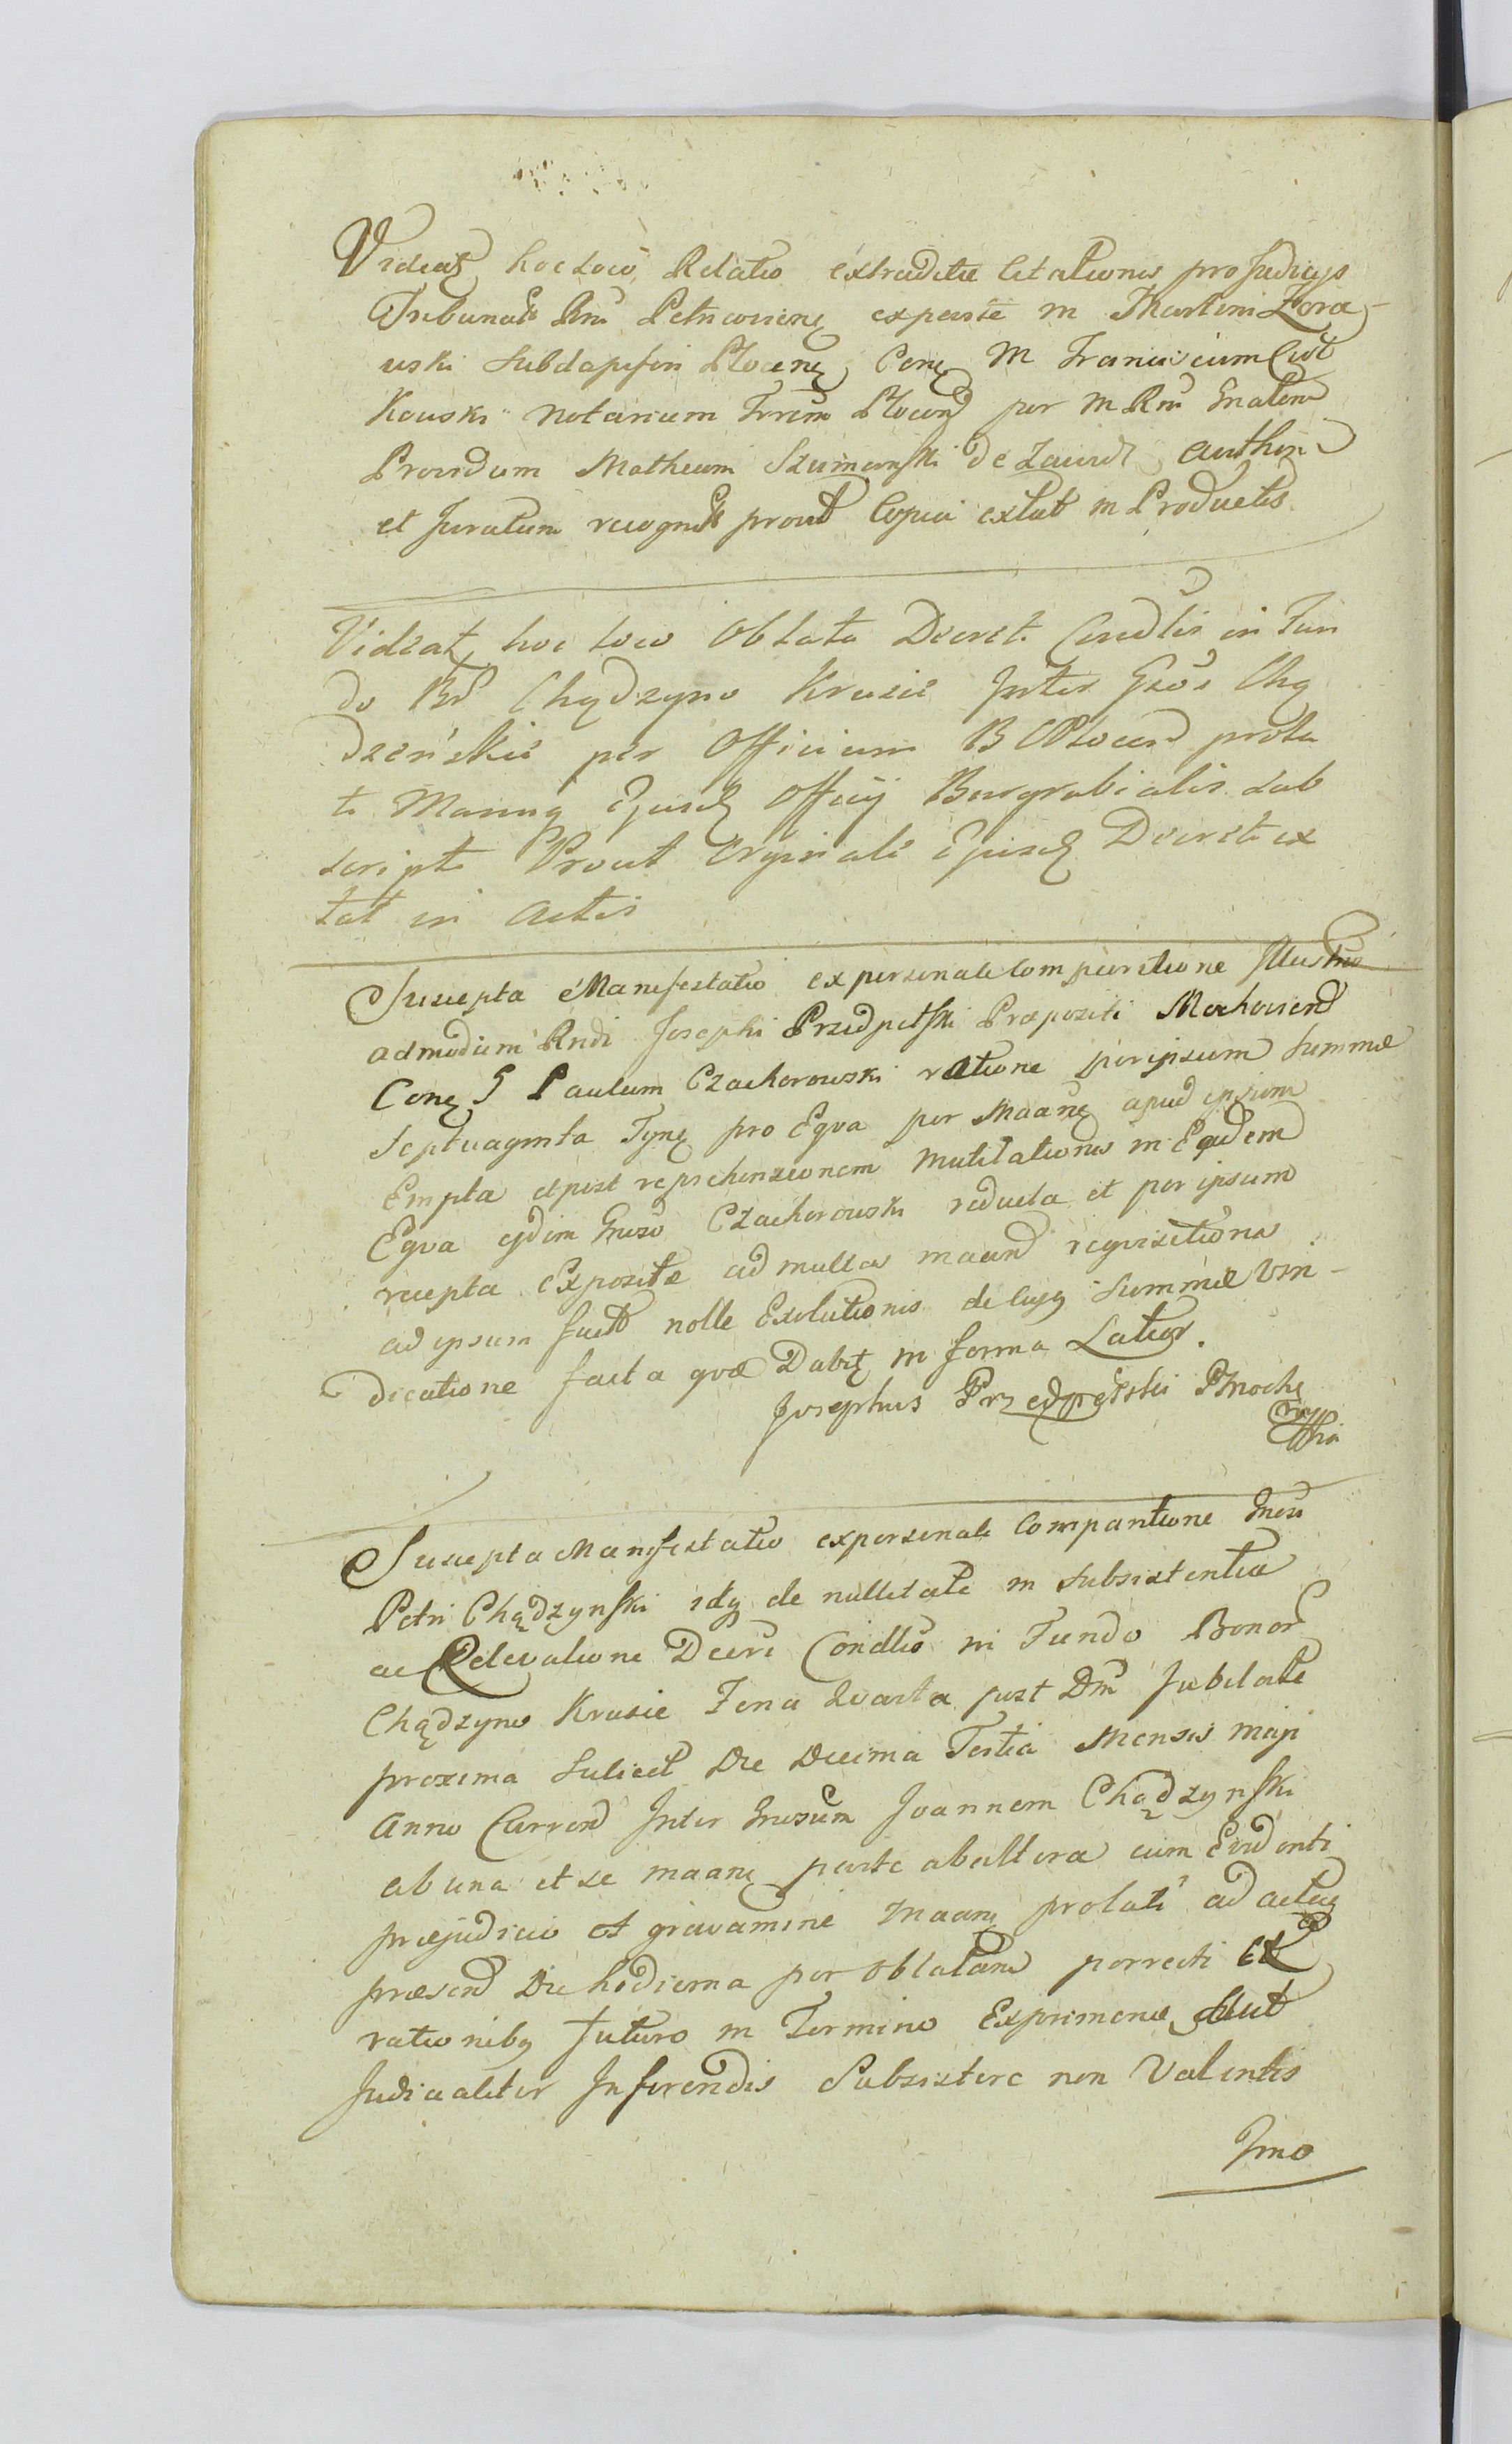 Videat hoc Loco Relatio extraditæ Citationis pro Judicys
Tribunals Rni Petricoviens ex parte M Martini Zora-
uski Subdapiferi Plocens Cons M Franciscum Ciot
Kouski Notarium Trrem Plocens per M Rni Gnalem
Providum Matheum Szumanski de Zawid Authen
et Juratum recognit prout Copia extat in Productis
Videat hoc Loco Oblata Decret Condlis in Fun
do Br Chądzyno Krusie Inter Gsos Chą
dzeńskie per Officium B C Plocens prola
ti Manuq Ejusd Officij Burgrabialis Sub
scripti Prout Orginale Ejusd Decreti ex
tat in Actis
Suscepta Manifestatio ex personali Comparitione Illustris
admodum Rndi Josephi Przedpełski Præpositi Mochoviens
Cons G Paulum Czachorowski ratione per ipsum Summæ
Septuaginta Tynf pro Equa per Maanę apud ipsum
Empta et post reprehensionem Mutilationis in Eadem
Equa eidem Gneso Czachorouski reducta et per ipsum
recepta Expositæ ad multas maand requisitiones
ad ipsum fact nolle Exolutionis de cujq Summæ Vin-
dicatione facta quæ Dabit in forma Latior.
Josephus Przedpełski P Moch
Suscepta Manifestatio ex personali Comparitione Gnesi
Petri Chądzynski idq de nullitate in Subsistentia
ac Relevatione Decre Condlis in Fundo Bonor
Chądzyno Krusie Feria Quarta post Dm Jubilate
proxima Scilicet Die Decima Tertia Mensis Maji
Anno Currend Inter Gnosum Joannem Chądzynski
ab una et se maanę parte ab altera cum Evidenti
præjudicio et gravamine Maanę prolati ad acta
præsend Die hodierna per Oblatam porrecti Ex
rationibq futuro in Termino Exprimend Aut
Judicialiter Inferendis Subsistere non Valentis
Imo